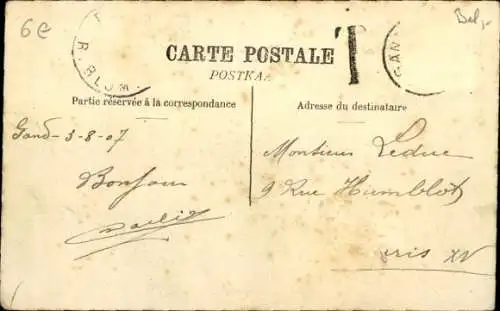 6€
Bel,-
R. BLOM
T
GAN
CARTE POSTALE
POSTKA
Partie réservée à la correspondance
Adresse du destinataire
Gand-3-8-07
Monsieur Leduc
Bonjour
9 Rue Humblot
aris XV